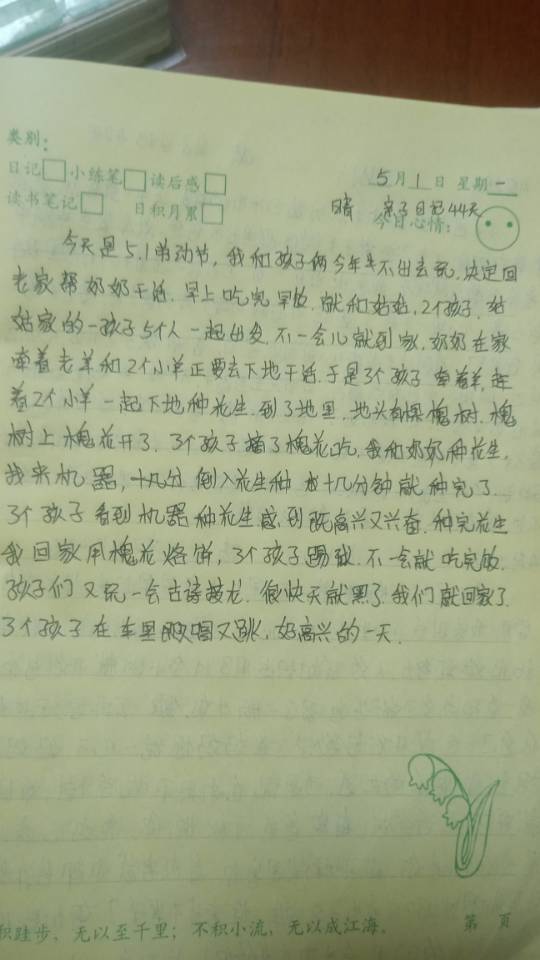 类别：
日记□小练笔□读后感□
读书笔记□ 日积月累□
5月1日 星期一
晴 亲子日记44天
今日心情：
今天是5.1劳动节，我和孩子俩今年未不出去玩.决定回
老家帮奶奶干活.早上吃完早饭.就和姑姑，2个孩子.姑
姑家的一孩子5个人一起出发.不一会儿就到家.奶奶在家
牵着老羊和2个小羊正要去下地干活.于是3个孩子牵着羊，赶
着2个小羊一起下地种花生.到了地里.地头有棵槐树.槐
树上槐花开了.3个孩子摘了槐花吃.我和奶奶种花生，
找来机器，十几分倒入花生种 十几分钟就种完了.
3个孩子看到机器种花生感到既高兴又兴奋.种完花生
我回家用槐花烙饼，3个孩子踢毽.不一会就吃完饭.
孩子们又玩一会古诗接龙.很快天就黑了.我们就回家了.
3个孩子在车里既唱又跳，好高兴的一天.
积跬步，无以至千里；不积小流，无以成江海。 第 页